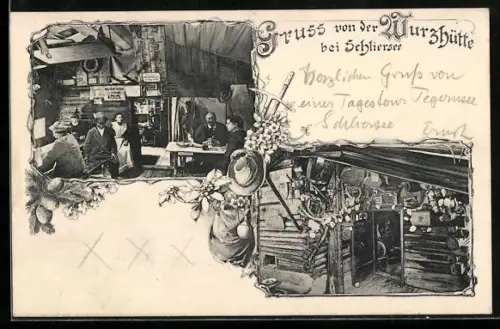 Gruss von der Wurzhütte
bei Schliersee
Herzlichen Gruß von
einer Tagestour Tegernsee
Schliersee
Ernst
X X X